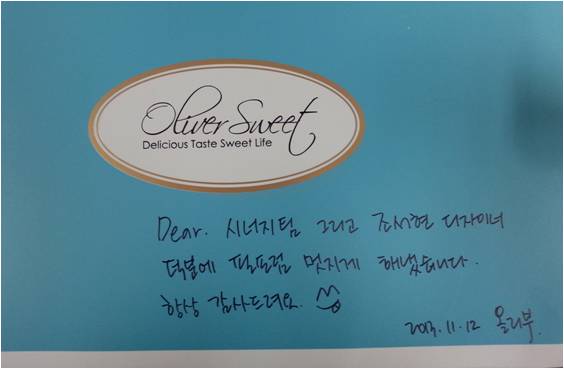 Oliver Sweet
Delicious Taste Sweet Life
Dear. 시너지팀 그리고 조서현 디자이너
덕분에 멋지게 해냈습니다.
항상 감사드려요.
2013.11.12 올리부.